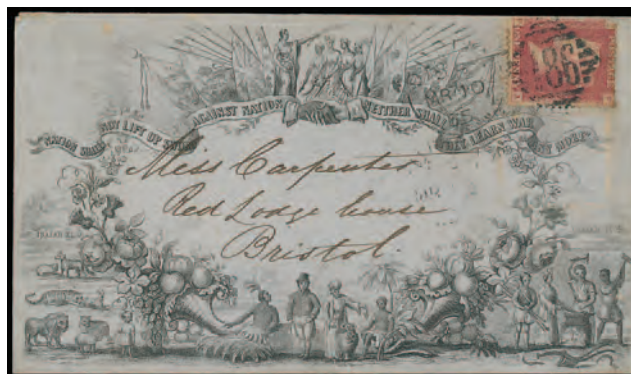 NATION SHALL NOT LIFT UP SWORD AGAINST NATION NEITHER SHALL THEY LEARN WAR ANY MORE
Miss Carpenter
Red Lodge house
Bristol.